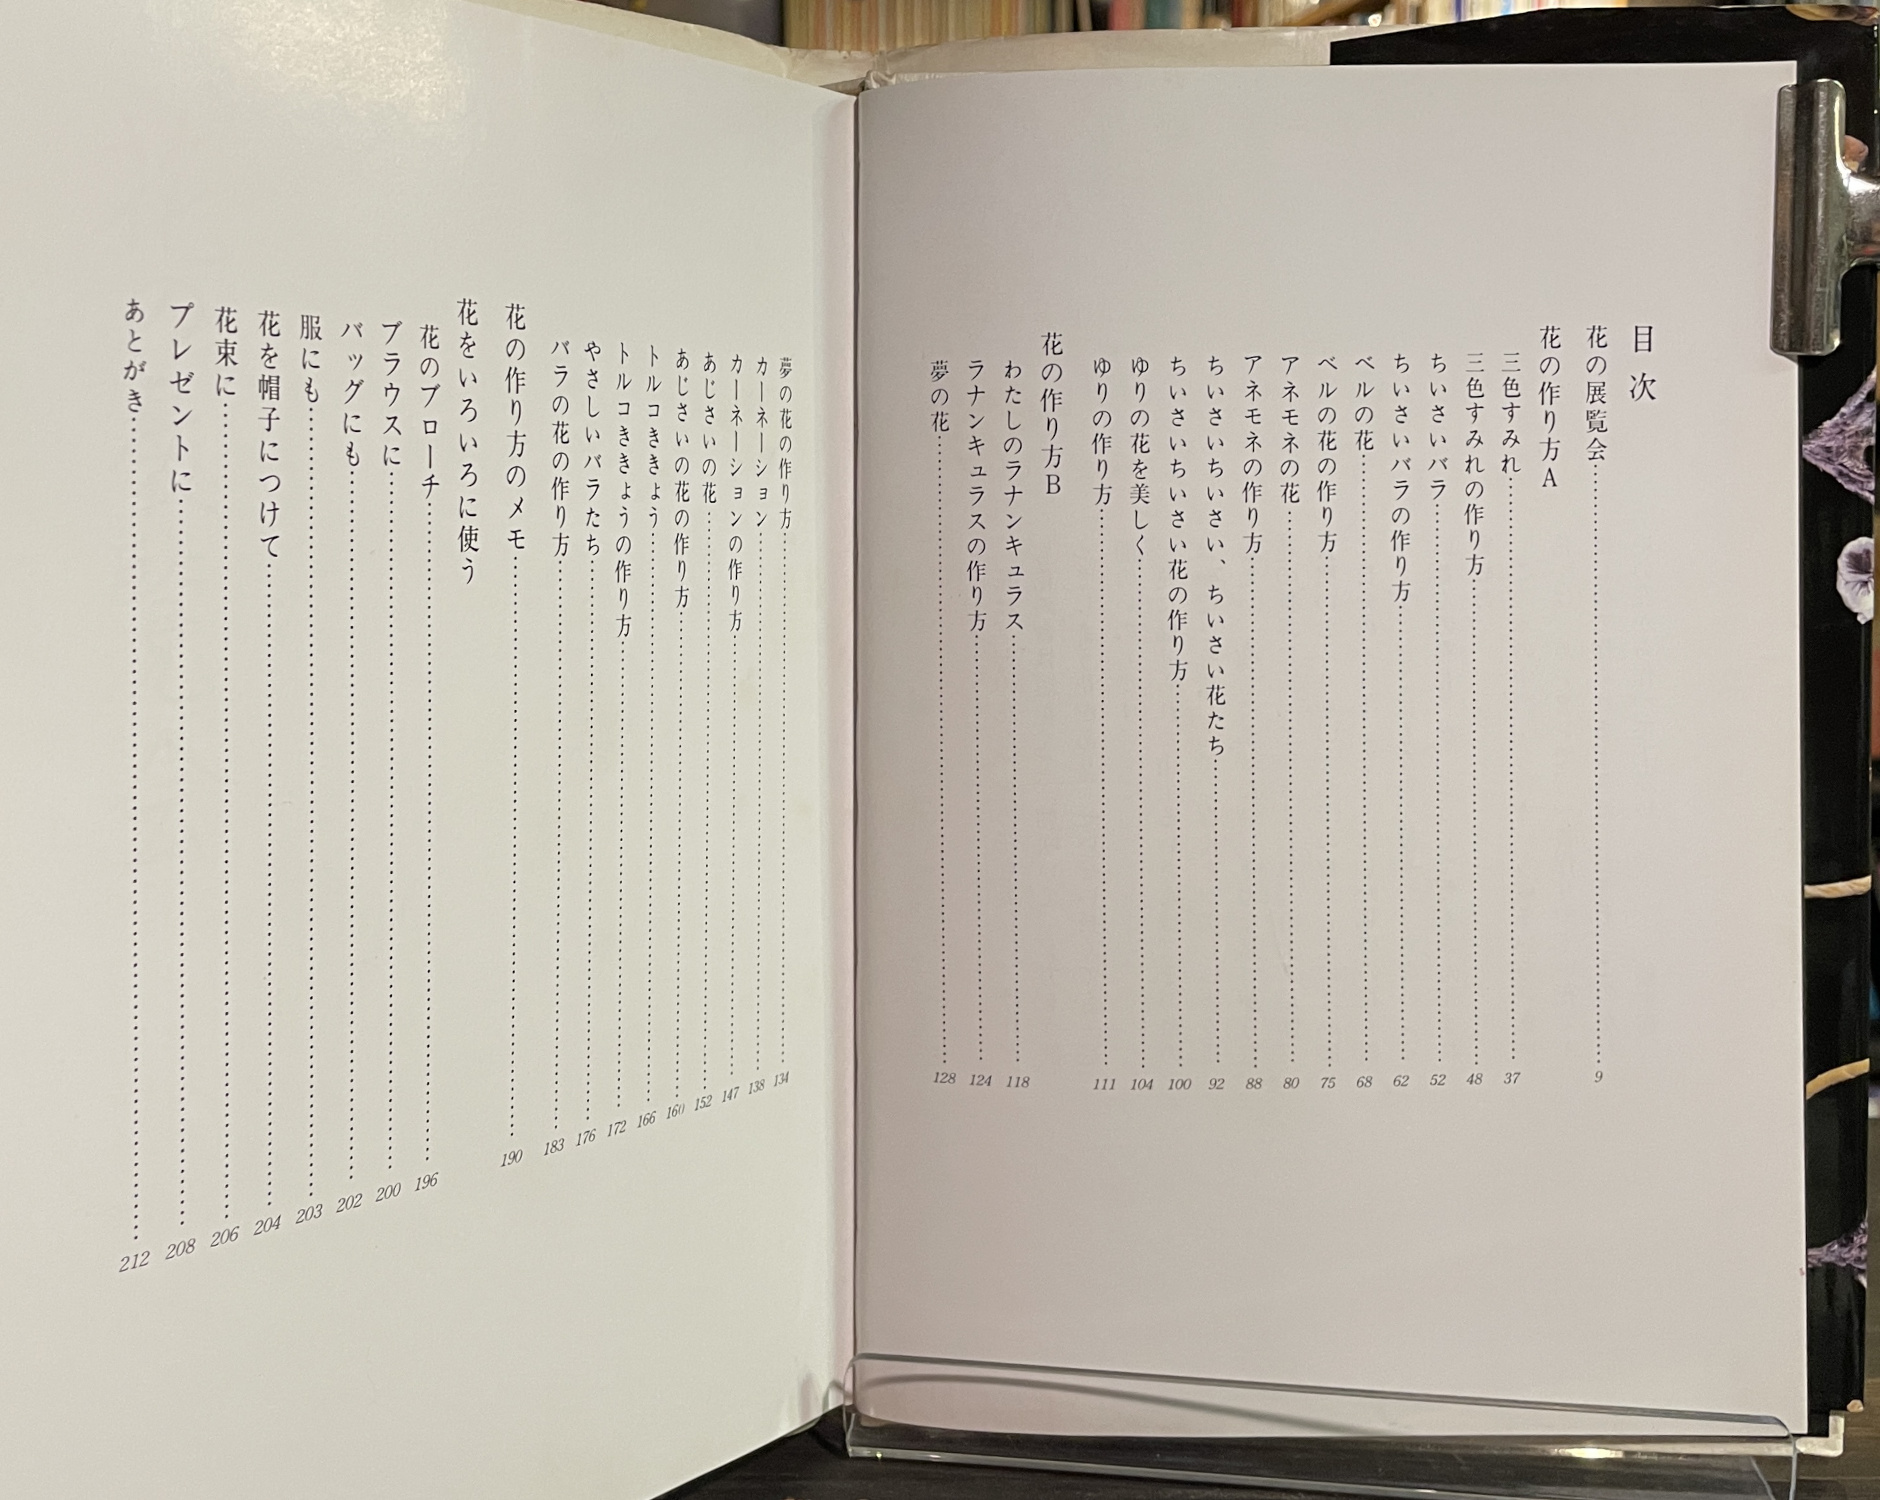 目次
花の展覧会 9
花の作り方A
三色すみれ 37
三色すみれの作り方 48
ちいさいバラ 52
ちいさいバラの作り方 62
ベルの花 68
ベルの花の作り方 75
アネモネの花 80
アネモネの作り方 88
ちいさいちいさい、ちいさい花たち 92
ちいさいちいさい花の作り方 100
ゆりの花を美しく 104
ゆりの作り方 111
花の作り方B
わたしのラナンキュラス 118
ラナンキュラスの作り方 124
夢の花 128
夢の花の作り方 134
カーネーション 138
カーネーションの作り方 147
あじさいの花 152
あじさいの花の作り方 160
トルコききょう 166
トルコききょうの作り方 172
やさしいバラたち 176
バラの花の作り方 183
花の作り方のメモ 190
花をいろいろに使う
花のブローチ 196
ブラウスに 200
バッグにも 202
服にも 203
花を帽子につけて 204
花束に 206
プレゼントに 208
あとがき 212